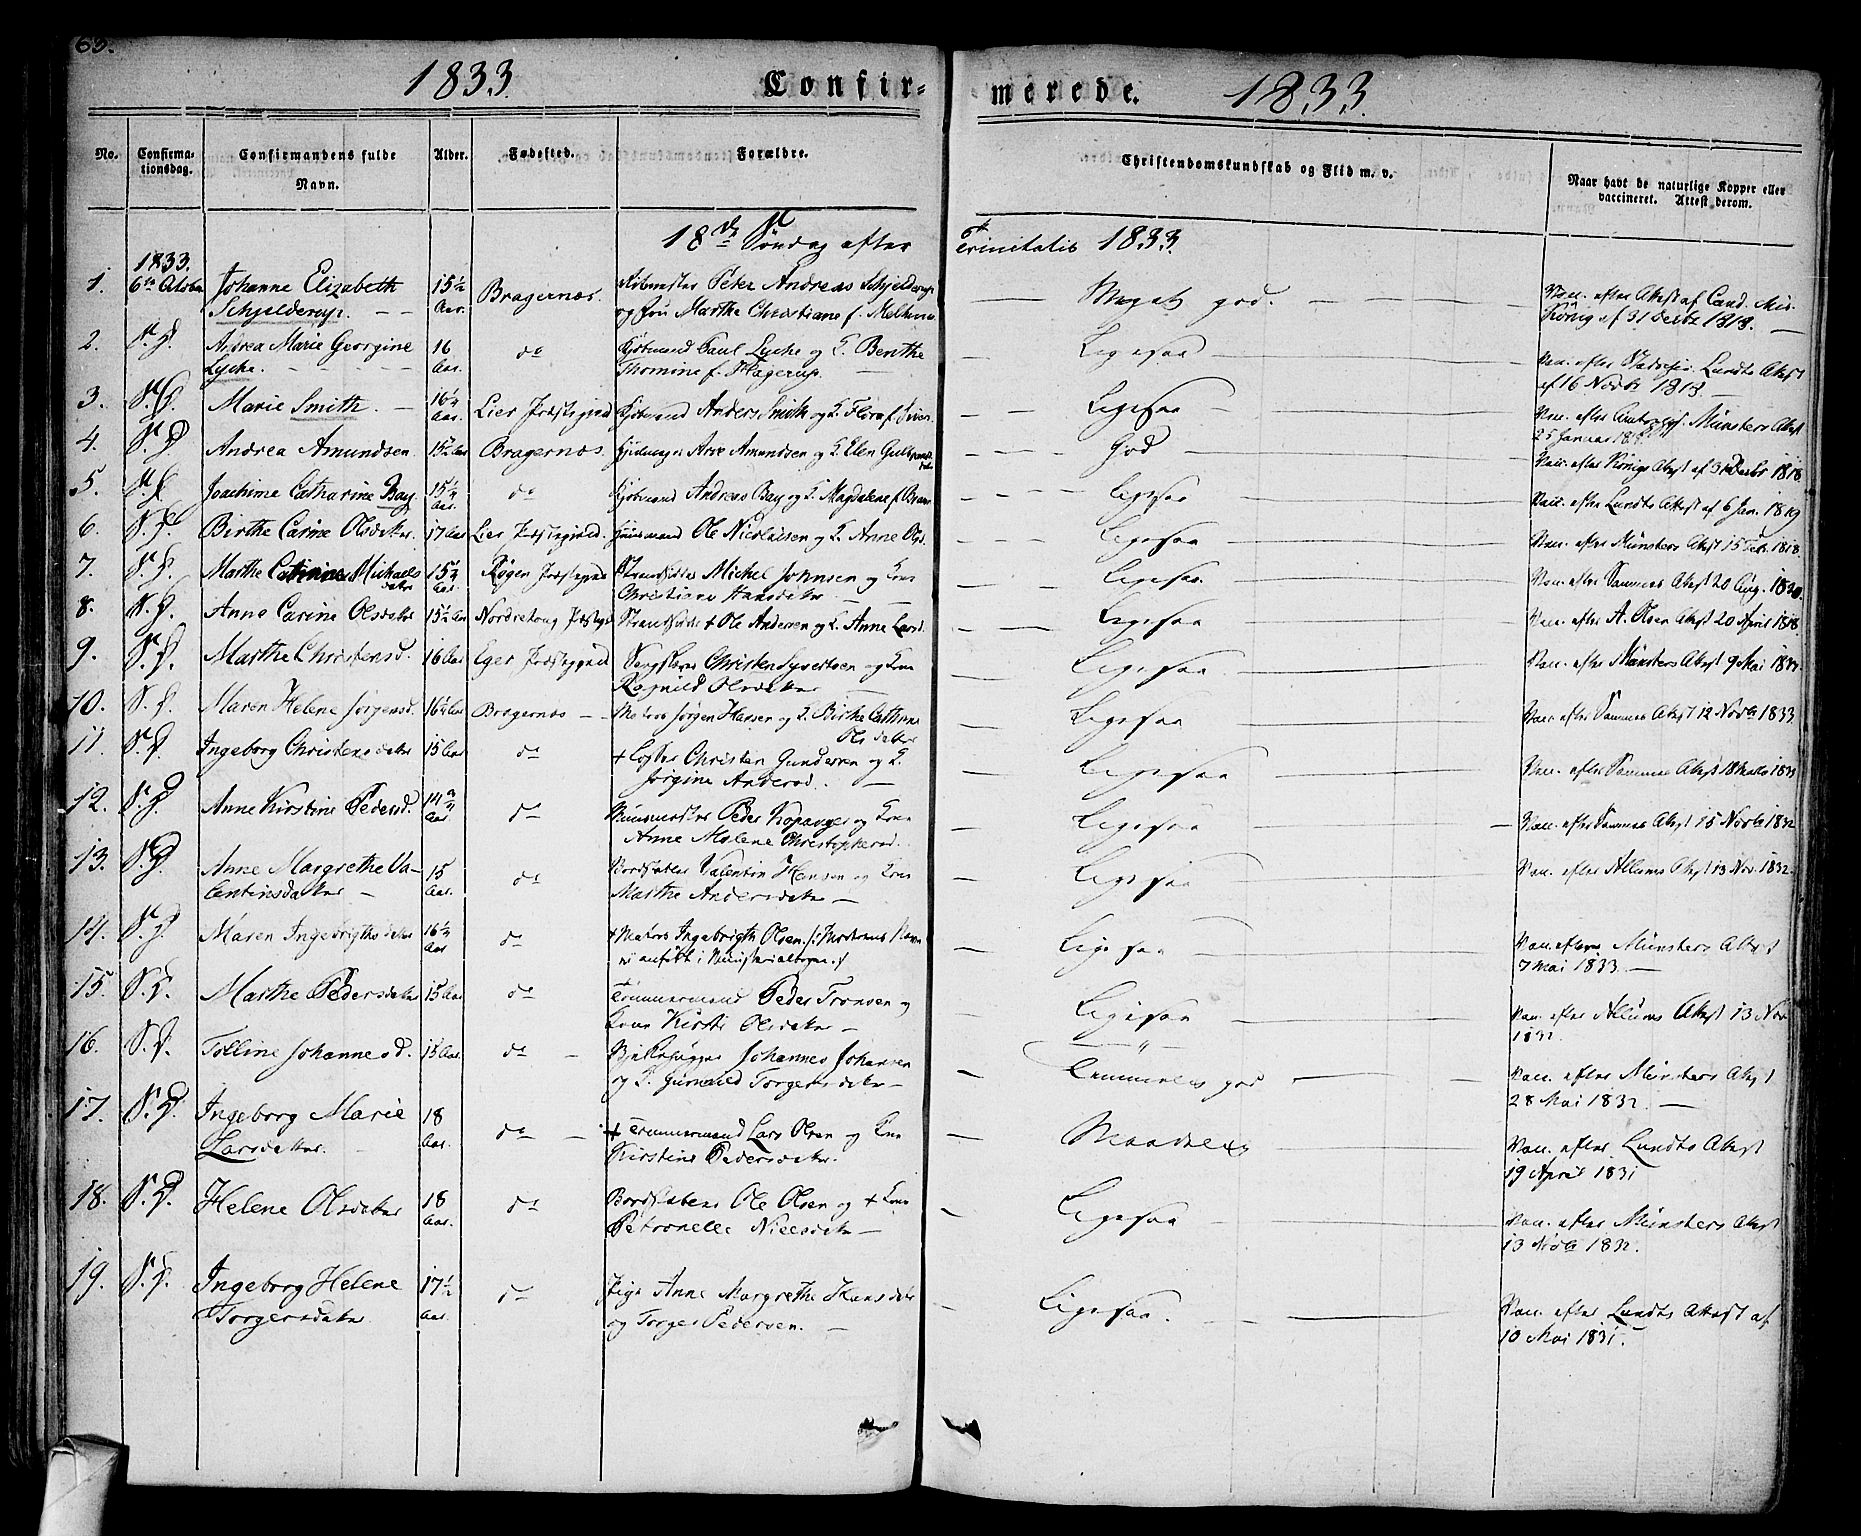 63.
1833. Confir=
merede. 1833.
No.
Confirma-
tionsdag.
Confirmandens fulde
Navn.
Alder.
Fødested.
Forældre.
Christendomskundskab og Flid m. v.
Naar havt de naturlige Kopper eller
vaccineret. Attest derom.
18de Søndag efter Trinitatis 1833.
1833.
1. 6te Octobr Johanne Elizabeth 15½ Bragernæs. Peter Andreas Schjelderup Meget god. Vacc. efter Attest af Cand. Med.
Schjelderup. Aar. og Fru Marthe Christiane f. König af 31 Decbr 1818.
2. S. D. Andrea Marie Georgine 16 do Kjøbmand Paul Lyche og K. Benthe Ligesaa
Lyche. Aar. Thomine f. Hagerup. af 16 Novbr 1818.
3. S. D. Marie Smith. 16¼ Lier Præstegield Kjøbmand Anders Smith og K. Flora f. Ligesaa Münsters Attest
Aar. 25 Januar
4. S. D. Andrea Amundsen 15½ Aar Bragernæs. Arve Amundsen og K. Elen God Vacc. efter Königs Attest af 31 Decbr 1818
5. S. D. Joachime Catharine Bay 15¼ do Kjøbmand Andreas Bay og K. Magdalene f. Ligesaa Vacc. efter Lundts Attest af 6 Jan. 1819
Aar.
6. S. D. Birthe Carine Olsdatter 17 Aar Lier Præstegield. Huusmand Ole Nicolaisen og K. Anne Olsd. Ligesaa Vacc. efter Münsters Attest 15 1818.
7. S. D. Marthe Michaels 15¼ Røgen Præstegield Strandsidder Michel Johnsen og Kone Ligesaa. Vacc. efter Attest 20 Aug.
datter Aar. Christiane Hansdatter
8. S. D. Anne Carine Olsdatter 15½ Aar Strandsidder + Ole Andersen og K. Anne Larsd. Ligesaa Vacc. efter A. Olsen Attest 20 April 1818.
9. S. D. Marthe Christensd. 16 Aar Eger Præstegield Christen Syvertsen og Kone Ligesaa Vacc. efter Münsters Attest 9 Mai
Ragnild Olsdatter
10. S. D. Maren Helene Jørgensd. Bragernæs Matros Jørgen Hansen og K. Birthe Cathrine Ligesaa Vacc. efter Attest 12 Novbr 1833
Olsdatter
11. S. D. Ingeborg Christensdatter 15 Aar do + Christen Gundersen og K. Ligesaa Vacc. efter Attest 18
Jørgine Andersd.
12. S. D. Anne Kirstine Pedersd. 14¾ do Peder og Kone Ligesaa Vacc. efter Attest 15 Novbr 1832
Aar. Anne Malene Christophersd.
13. S. D. Anne Margrethe Va- 15 do Valentin Hansen og Kone Ligesaa Vacc. efter Allums Attest 13 Nov. 1832.
lentinsdatter Aar. Marthe Andersdatter
14. S. D. Maren Ingebrigtsdatter 16¼ do + Matros Ingebrigth Olsen. /: Moderens Navn Ligesaa Vacc. efter Münsters Attest
Aar ei anført i Ministerialbogen :/ 7 Mai 1833.
15. S. D. Marthe Pedersdatter 15 Aar do Tømmermand Peder Tronsen og Ligesaa Vacc. efter Allums Attest 13 Nov
Kone Kirsti Olsdatter 1832.
16. S. D. Tolline Johannesd. 15 Aar. do Johannes Johansen god Vacc. efter Münsters Attest
og K. Gunnild Torgersdatter 28 Mai 1832.
17. S. D. Ingeborg Marie 18 do + Tømmermand Lars Olsen og Kone Maadelig Vacc. efter Lundts Attest
Larsdatter. Aar. Kirstine Pedersdatter. 19 April 1831
18. S. D. Helene Olsdatter 18 do Ole Olsen og + Kone Ligesaa Vacc. efter Münsters Attest
Aar. Petronelle Nielsdatter 13 Novbr 1832.
19. S. D. Ingeborg Helene 17½ do Pige Anne Margrethe Hansdatter Ligesaa. Vacc. efter Lundts Attest af
Torgersdatter Aar. og Torger Pedersen. 10 Mai 1831.